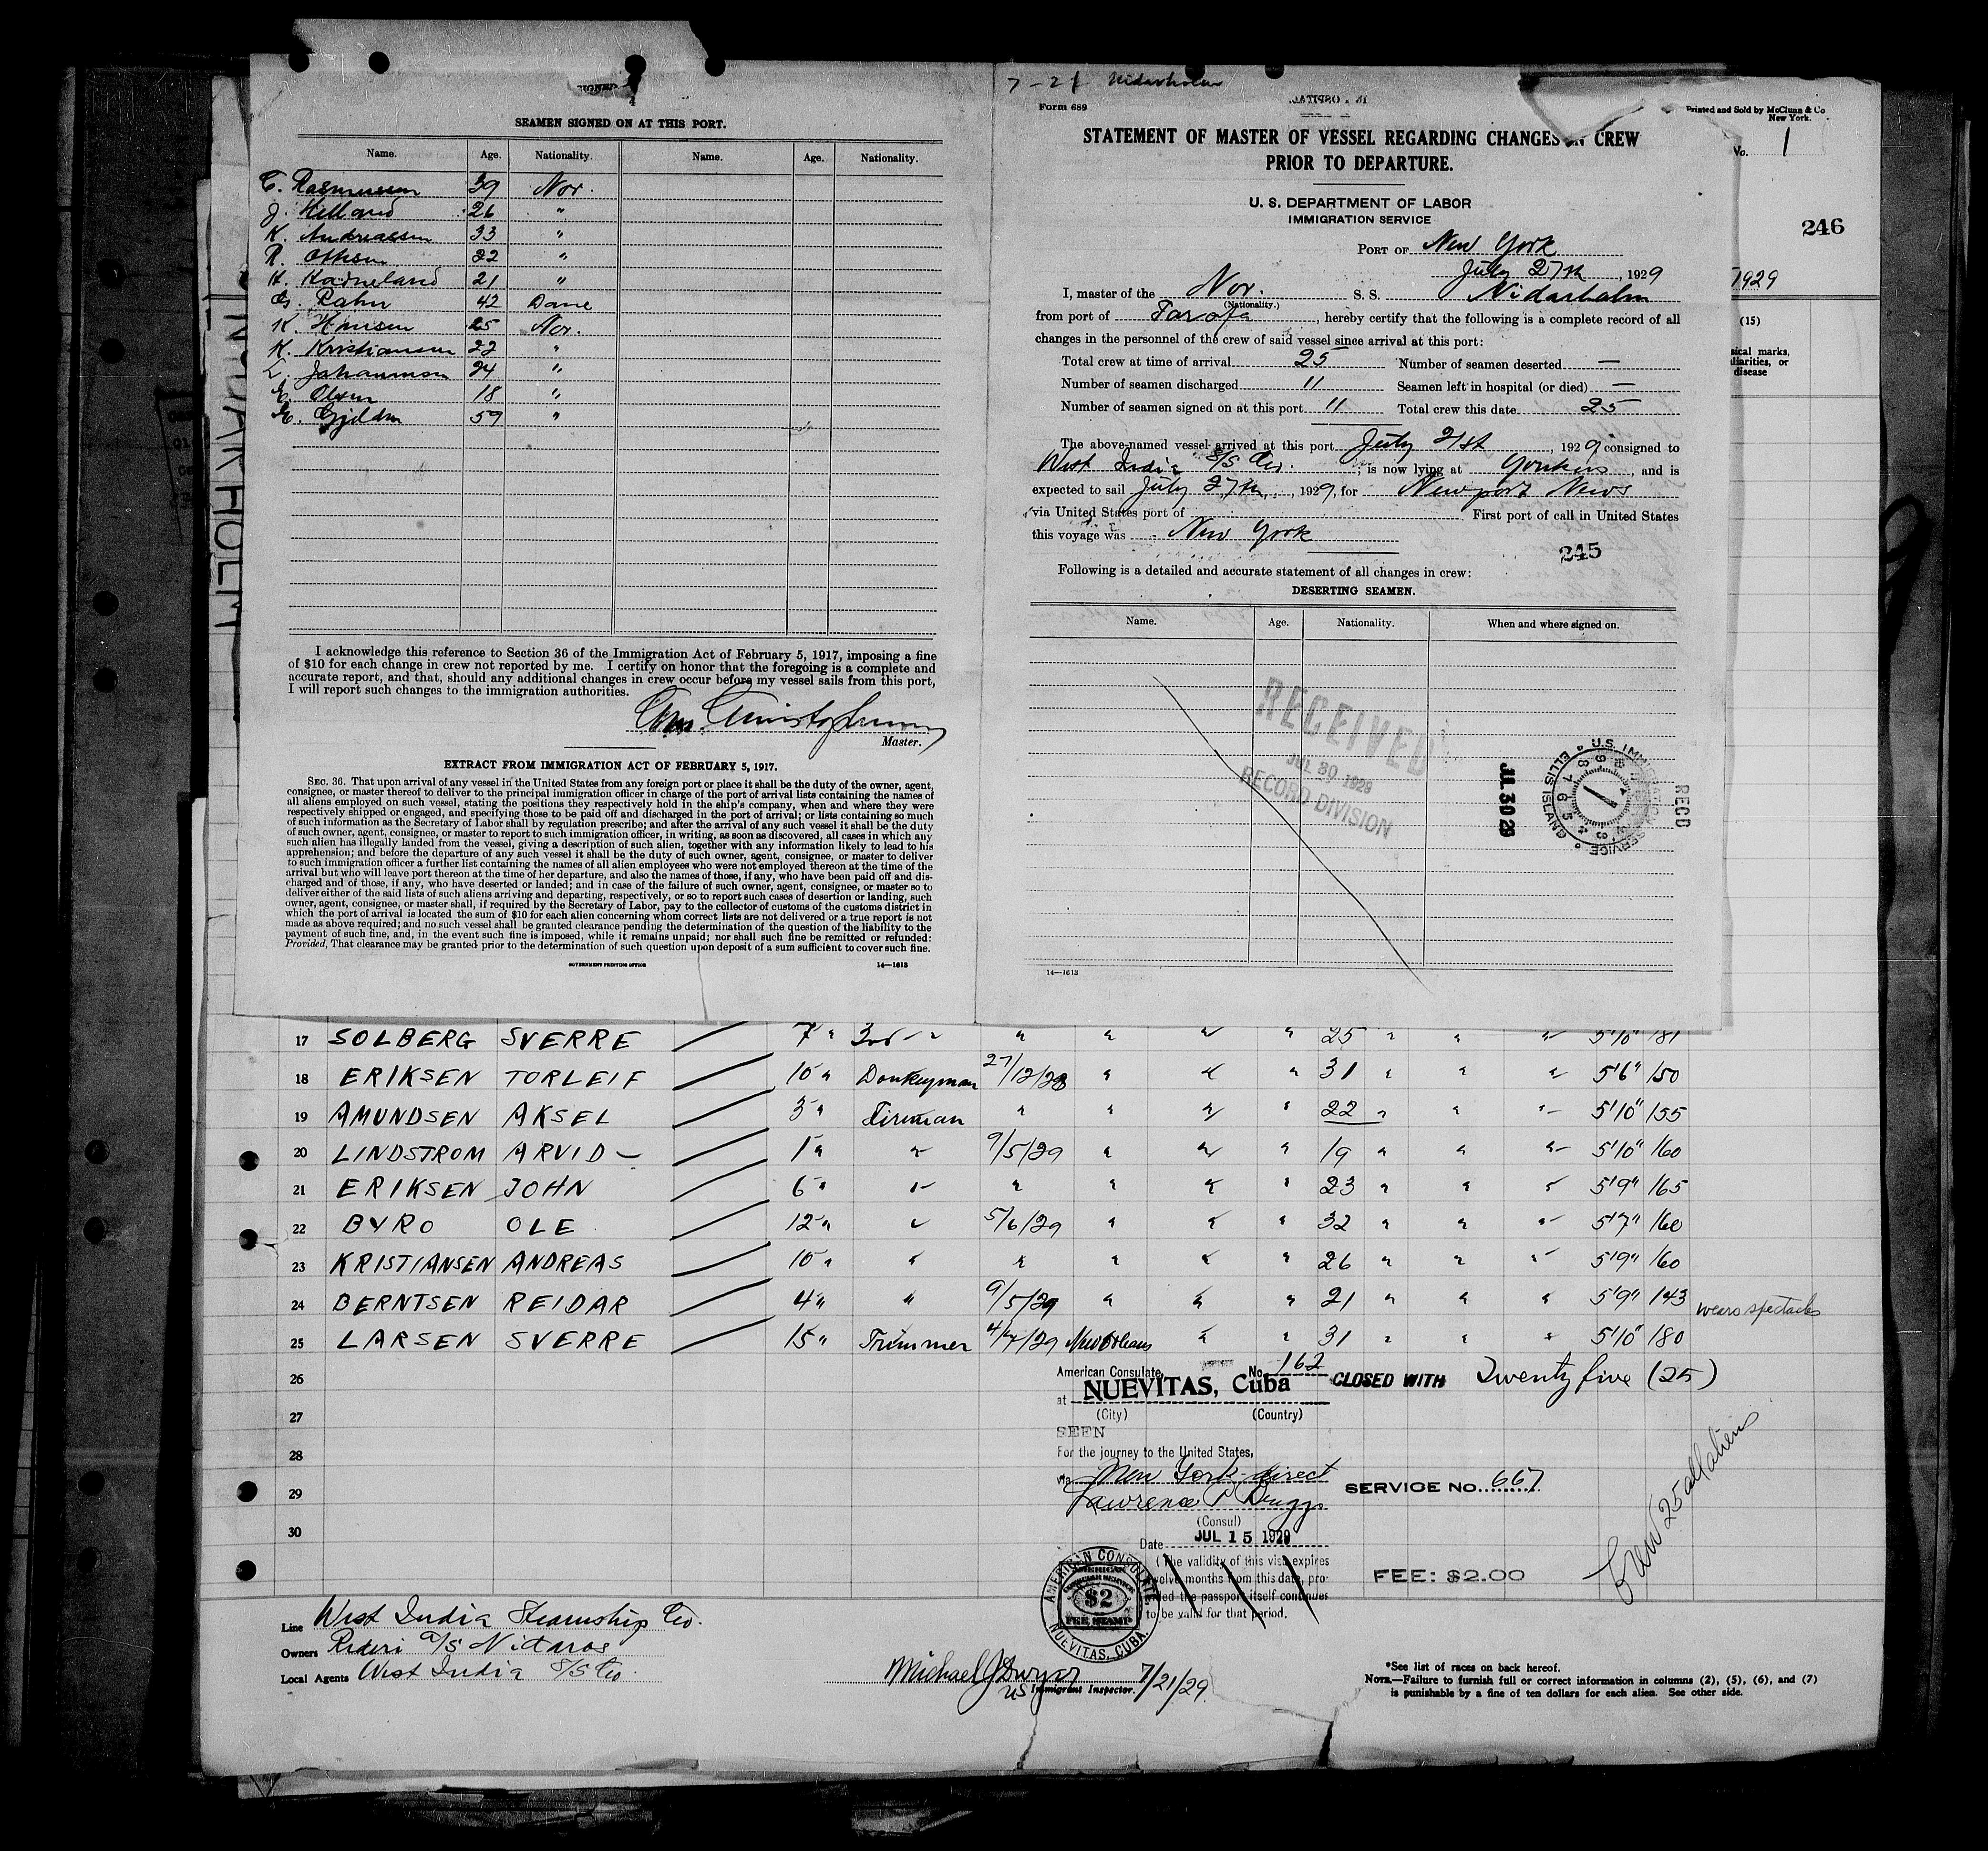 SEAMEN SIGNED ON AT THIS PORT.
Name. Age. Nationality. Name. Age. Nationality.
C. Rasmussen 39 Nor.
J. Helland 26 "
K. Andreassen 33 "
R. Olsen 22 "
21 "
G. Rahn 42 Dane
K. Hansen 25 Nor.
K. Kristiansen 22 "
L. Johannesen 24 "
E. Olsen 18 "
59 "
I acknowledge this reference to Section 36 of the Immigration Act of February 5, 1917, imposing a fine
of $10 for each change in crew not reported by me. I certify on honor that the foregoing is a complete and
accurate report, and that, should any additional changes in crew occur before my vessel sails from this port,
I will report such changes to the immigration authorities.
Master.
EXTRACT FROM IMMIGRATION ACT OF FEBRUARY 5, 1917.
SEC. 36. That upon arrival of any vessel in the United States from any foreign port or place it shall be the duty of the owner, agent,
consignee, or master thereof to deliver to the principal immigration officer in charge of the port of arrival lists containing the names of
all aliens employed on such vessel, stating the positions they respectively hold in the ship's company, when and where they were
respectively shipped or engaged, and specifying those to be paid off and discharged in the port of arrival; or lists containing so much
of such information as the Secretary of Labor shall by regulation prescribe; and after the arrival of any such vessel it shall be the duty
of such owner, agent, consignee, or master to report to such immigration officer, in writing, as soon as discovered, all cases in which any
such alien has illegally landed from the vessel, giving a description of such alien, together with any information likely to lead to his
apprehension; and before the departure of any such vessel it shall be the duty of such owner, agent, consignee, or master to deliver
to such immigration officer a further list containing the names of all alien employees who were not employed thereon at the time of the
arrival but who will leave port thereon at the time of her departure, and also the names of those, if any, who have been paid off and dis-
charged and of those, if any, who have deserted or landed; and in case of the failure of such owner, agent, consignee, or master so to
deliver either of the said lists of such aliens arriving and departing, respectively, or so to report such cases of desertion or landing, such
owner, agent, consignee, or master shall, if required by the Secretary of Labor, pay to the collector of customs of the customs district in
which the port of arrival is located the sum of $10 for each alien concerning whom correct lists are not delivered or a true report is not
made as above required; and no such vessel shall be granted clearance pending the determination of the question of the liability to the
payment of such fine, and, in the event such fine is imposed, while it remains unpaid; nor shall such fine be remitted or refunded:
Provided, That clearance may be granted prior to the determination of such question upon deposit of a sum sufficient to cover such fine.
GOVERNMENT PRINTING OFFICE 14—1613
7-21 Nidarholm
Form 689
STATEMENT OF MASTER OF VESSEL REGARDING CHANGES IN CREW
PRIOR TO DEPARTURE.
U. S. DEPARTMENT OF LABOR
IMMIGRATION SERVICE
PORT OF New York
July 27th, 1929
I, master of the Nor. S. S. Nidarholm
(Nationality.)
from port of Tarafa, hereby certify that the following is a complete record of all
changes in the personnel of the crew of said vessel since arrival at this port:
Total crew at time of arrival 25 Number of seamen deserted —
Number of seamen discharged 11 Seamen left in hospital (or died) —
Number of seamen signed on at this port 11 Total crew this date 25
The above-named vessel arrived at this port July 21st, 1929 consigned to
West India S/S Co.; is now lying at Yonkers, and is
expected to sail July 27th, 1929, for Newport News
via United States port of First port of call in United States
this voyage was New York
245
Following is a detailed and accurate statement of all changes in crew:
DESERTING SEAMEN.
Name. Age. Nationality. When and where signed on.
RECEIVED
JUL 30 1929
RECORD DIVISION
JUL 30 29
U.S. IMMIGRATION SERVICE ELLIS ISLAND
RECD
14—1613
Printed and Sold by McClunn & Co
New York.
No. 1
246
1929
(15)
sical marks,
liarities, or
disease
NIDARHOLM
17 SOLBERG SVERRE 7 " 3rd " " " " " 25 " " " 5'10" 181
18 ERIKSEN TORLEIF 10 " Donkeyman 27/12/28 " " " 31 " " " 5'6" 150
19 AMUNDSEN AKSEL 3 " Fireman " " " " 22 " " " 5'10" 155
20 LINDSTROM ARVID 1 " " 9/5/29 " " " 19 " " " 5'10" 160
21 ERIKSEN JOHN 6 " " " " " " 23 " " " 5'9" 165
22 BYRO OLE 12 " " 5/6/29 " " " 32 " " " 5'7" 160
23 KRISTIANSEN ANDREAS 10 " " " " " " 26 " " " 5'9" 160
24 BERNTSEN REIDAR 4 " " 9/5/29 " " " 21 " " " 5'9" 143 wears spectacles
25 LARSEN SVERRE 15 " Trimmer 4/7/29 New Orleans " " 31 " " " 5'10" 180
26
27
28
29
30
American Consulate, No. 162
at NUEVITAS, Cuba
(City) (Country)
SEEN
For the journey to the United States,
via New York direct
Lawrence P Briggs
(Consul)
Date JUL 15 1929
(The validity of this visa expires
twelve months from this date, pro-
vided the passport itself continues
to be valid for that period.
CLOSED WITH Twenty five (25)
SERVICE NO. 667
FEE: $2.00
Crew 25 all aliens
AMERICAN CONSULATE
AMERICAN
$2
FEE STAMP
NUEVITAS, CUBA.
Line West India Steamship Co.
Owners Rederi A/S Nidaros
Local Agents West India S/S Co.
Michael J Dwyer 7/21/29
US Immigrant Inspector.
*See list of races on back hereof.
NOTE.—Failure to furnish full or correct information in columns (2), (5), (6), and (7)
is punishable by a fine of ten dollars for each alien. See other side.